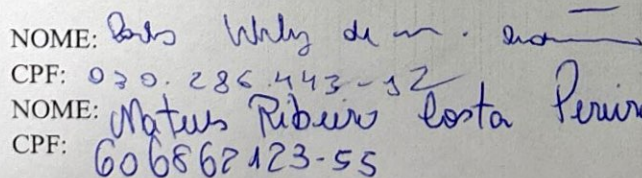 NOME: de
CPF: 030.286.443-12
NOME: Mateus Ribeiro Costa Pereira
CPF: 606862123-55